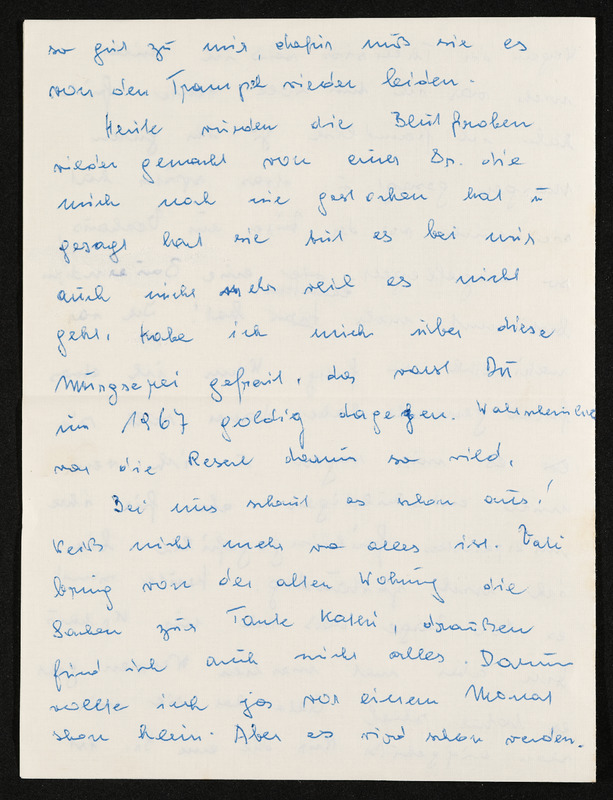 so gut zu mir, dafür muß sie es
von den Trampel wieder leiden.
Heute wurden die Blutproben
wieder gemacht von einer Dr. die
mich noch nie gestochen hat u
gesagt hat sie tut es bei mir
auch nicht mehr weil es nicht
geht. Habe ich mich über diese
Murgserei gefreut. da warst Du
im 1967 goldig dagegen. Wahrscheinlich
war die Reserl darum so wild.
Bei uns schaut es schon aus!
Weiß nicht mehr wo alles ist. Vati
bring von der alten Wohnung die
Sachen zur Tante Kathi, draußen
find ich auch nicht alles. Darum
wollte ich ja vor einem Monat
schon heim. Aber es wird schon werden.